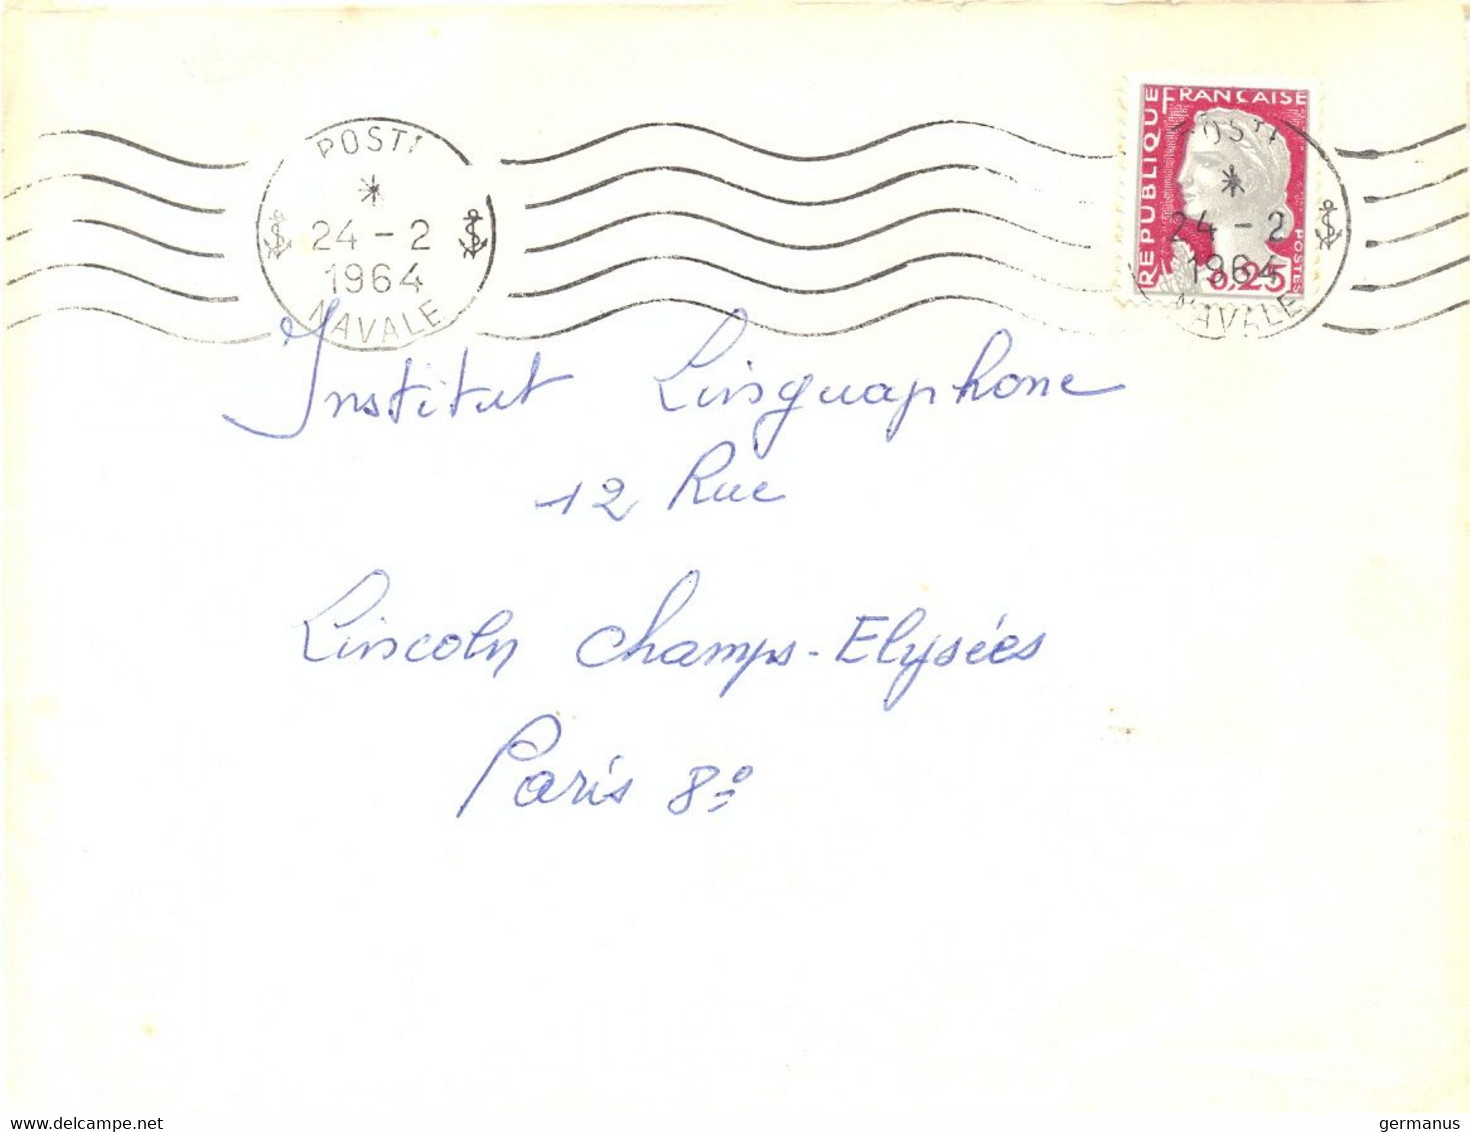 POSTE
24-2
1964
NAVALE
RÉPUBLIQUE FRANÇAISE
POSTES
0,25
POSTE
24-2
1964
NAVALE
Institut Linguaphone
12 Rue
Lincoln Champs-Elysées
Paris 8º
www.delcampe.net
germanus